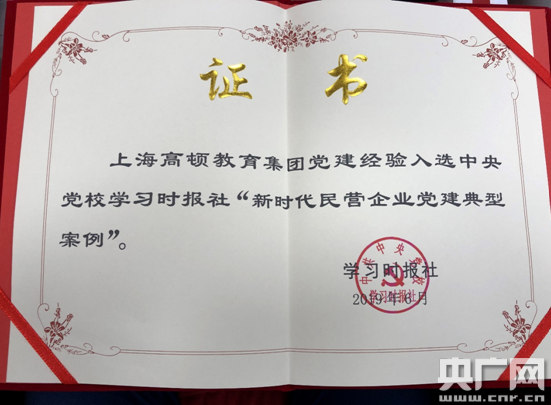 证 书
上海高顿教育集团党建经验入选中央
党校学习时报社“新时代民营企业党建典型
案例”。
学习时报社
2019年6月
中共中央党校
学习时报社
央广网
www.cnr.cn